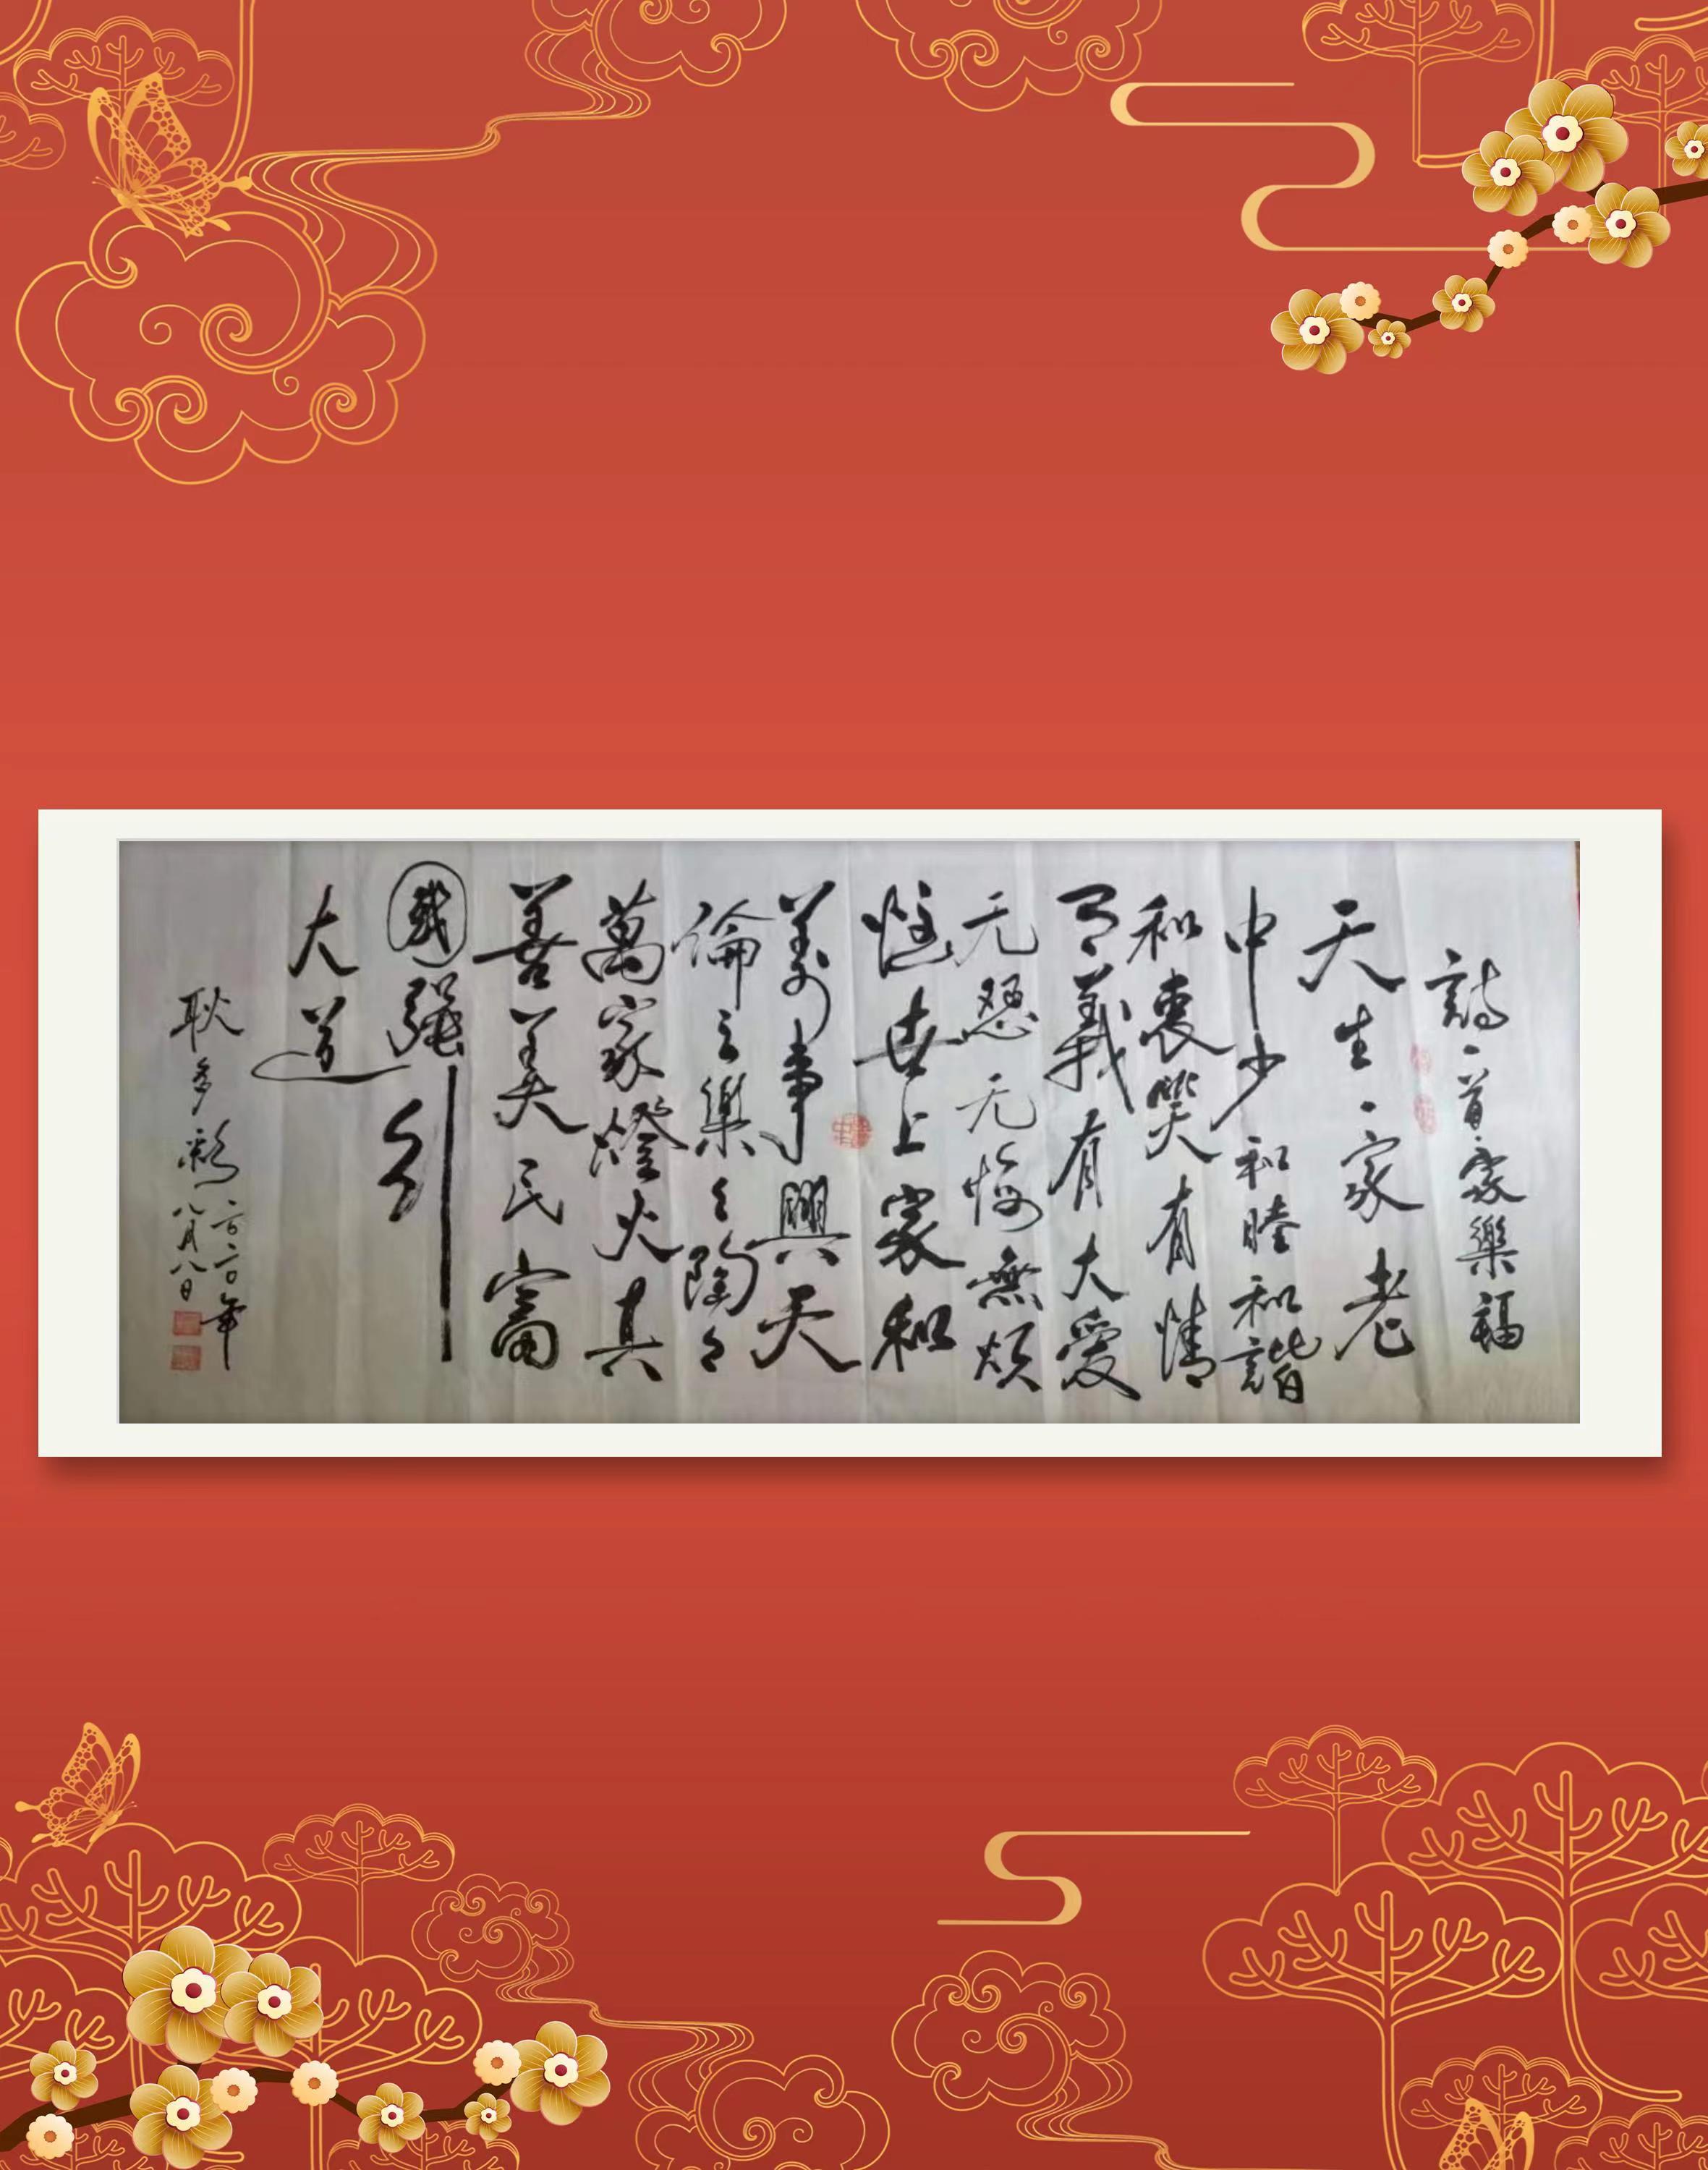 詩一首家樂福
天生一家老
中少和睦和諧
和衷笑有情
義有大愛
无怨无悔無煩
惱世上家和
萬事興天
倫之樂々陶々
萬家燈火真
善美民富
國強引
大道
耿多彩二〇二〇年
八月八日